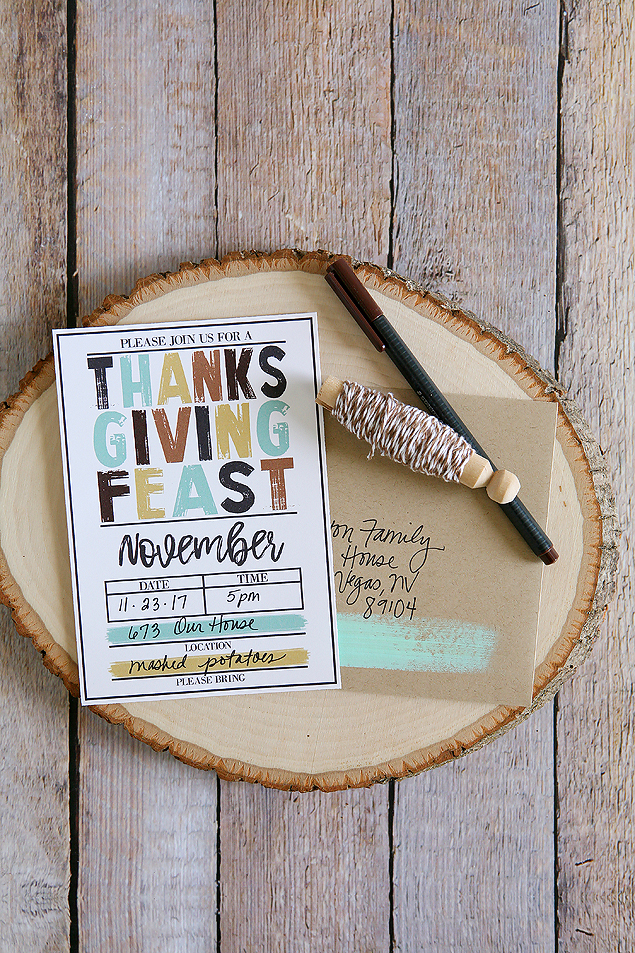 PLEASE JOIN US FOR A
THANKS
GIVING
FEAST
November
DATE TIME
11.23.17 5pm
673 Our House
LOCATION
mashed potatoes
PLEASE BRING
Family
House
Vegas, NV
89104